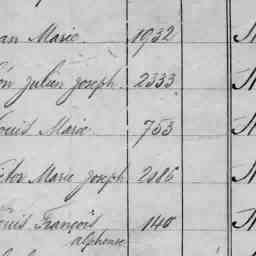 an Marie 1932
on Julien Joseph 2333
ouis Marie 753
ctor Marie Joseph 2086
ouis François 140
alphonse